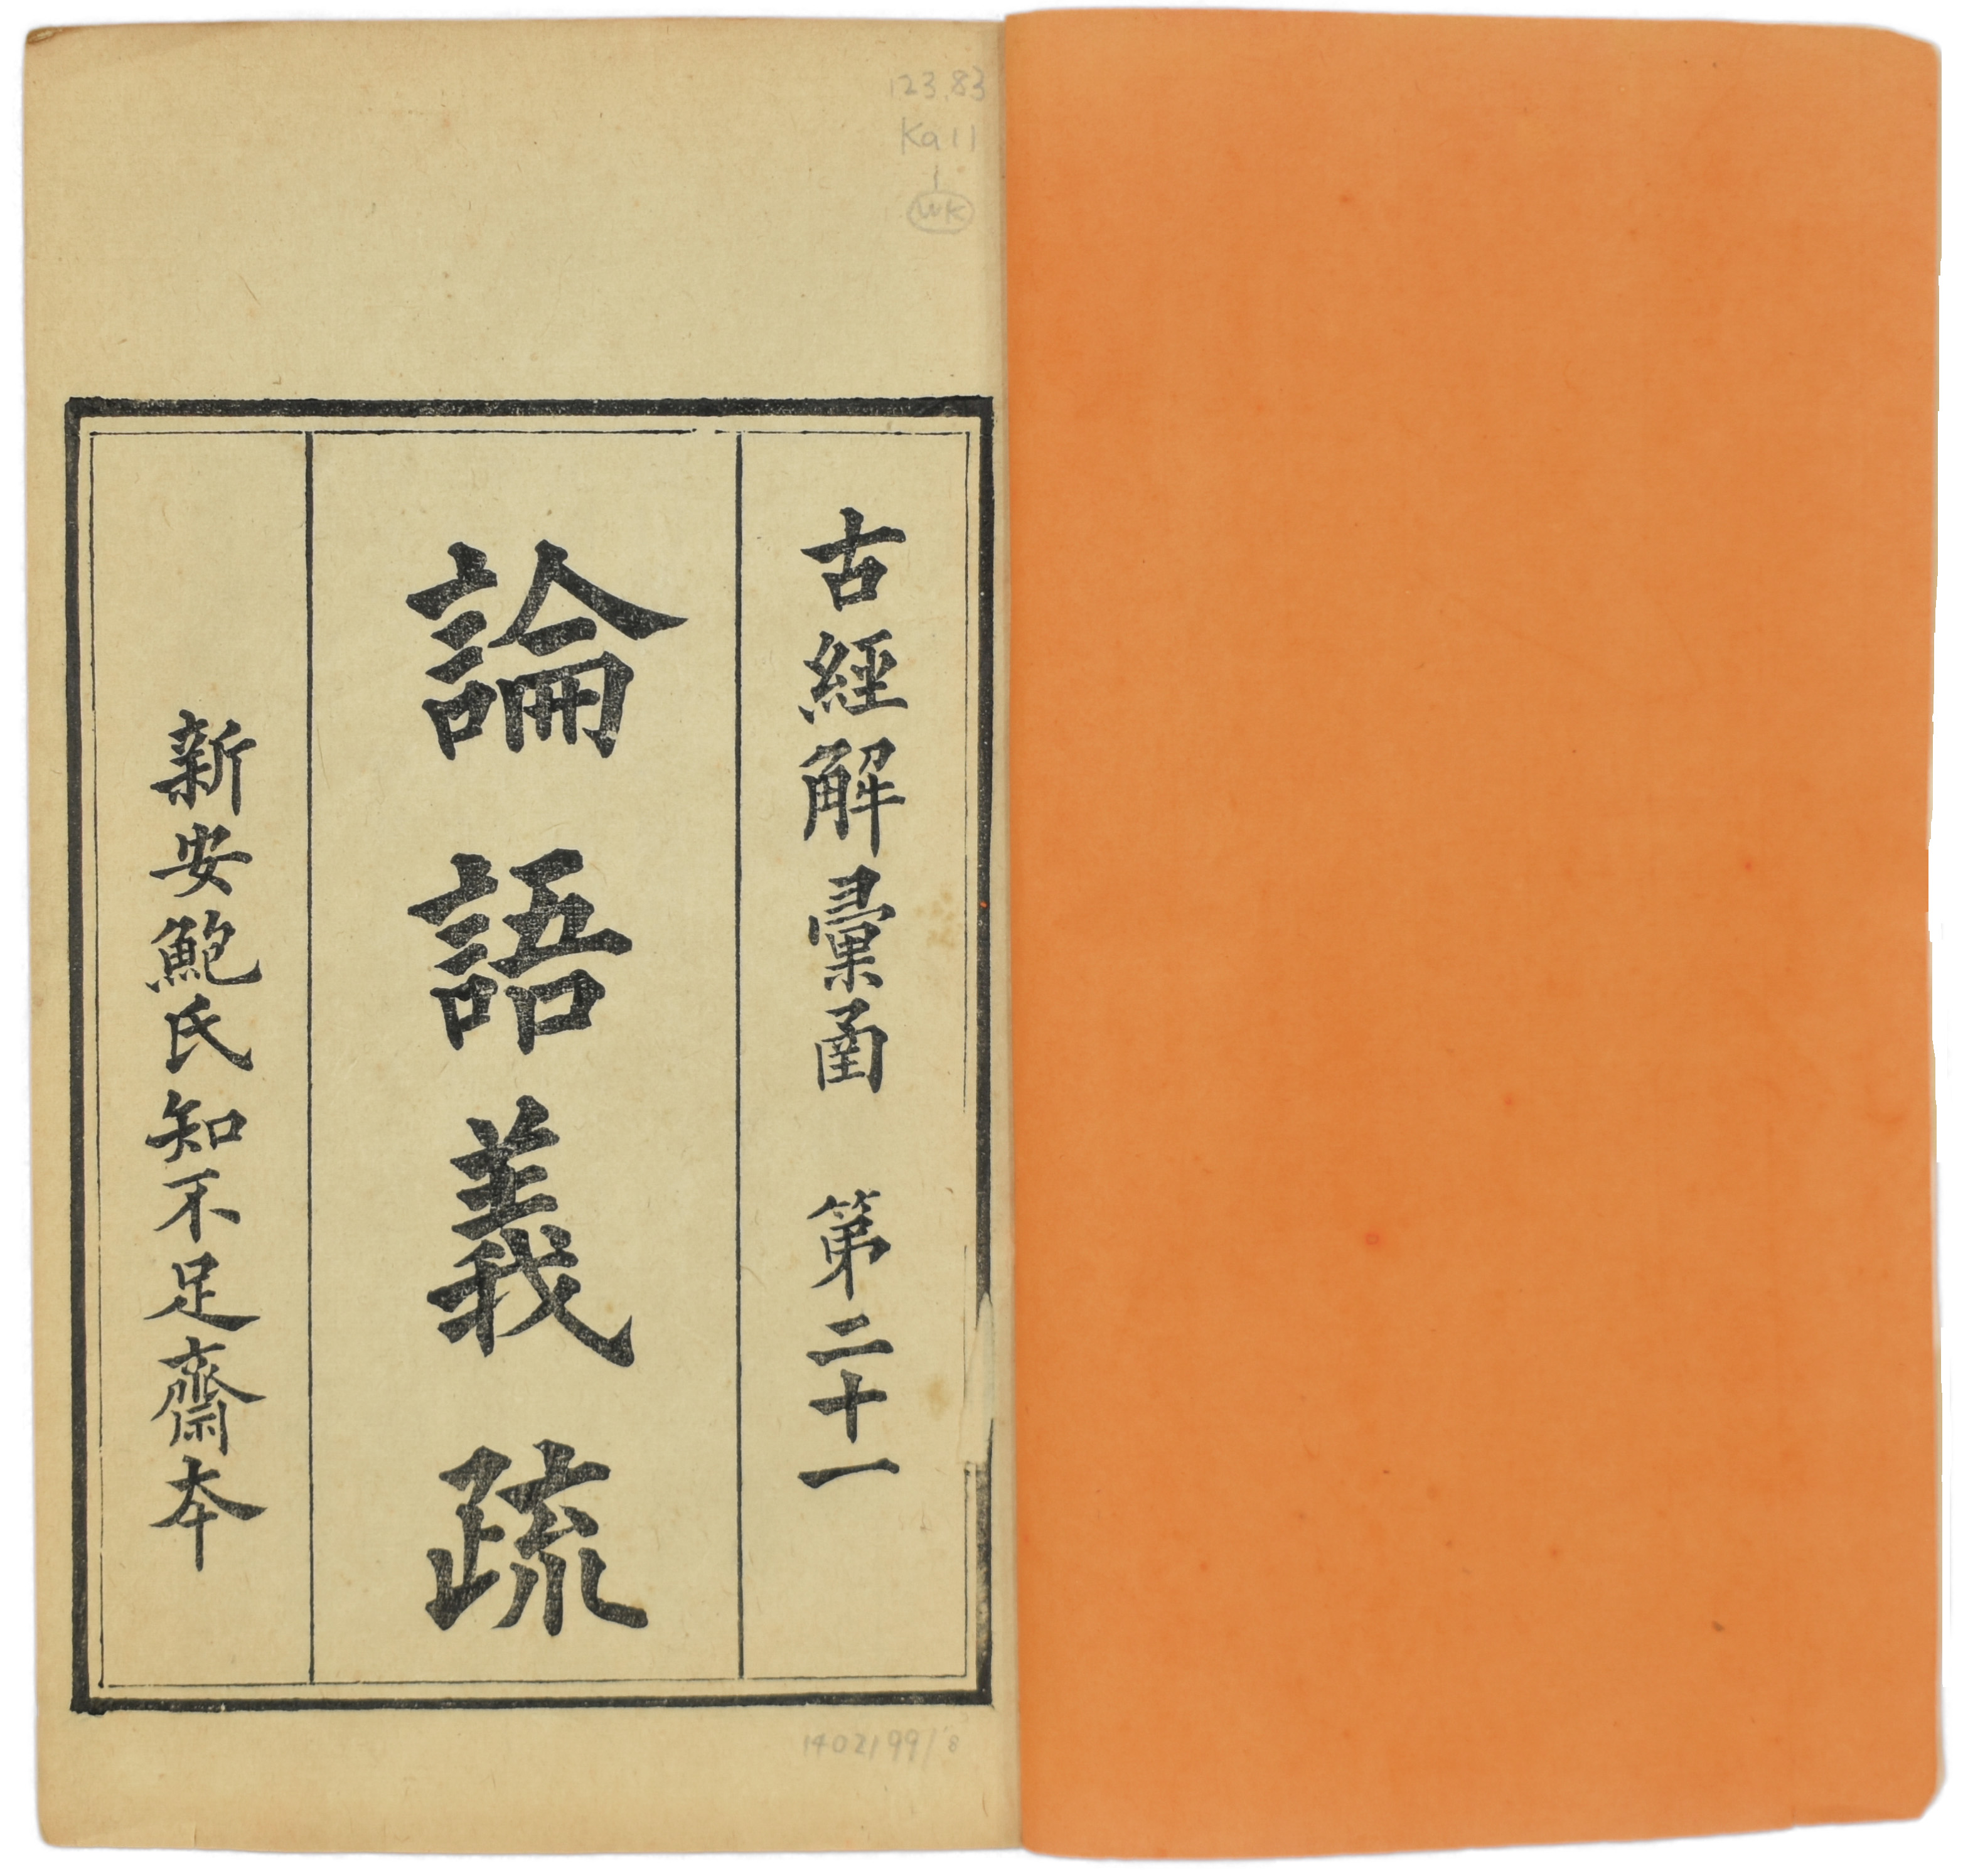 123.83
Ka11
1
WK
古經解彙函　第二十一
論語義疏
新安鮑氏知不足齋本
140219918